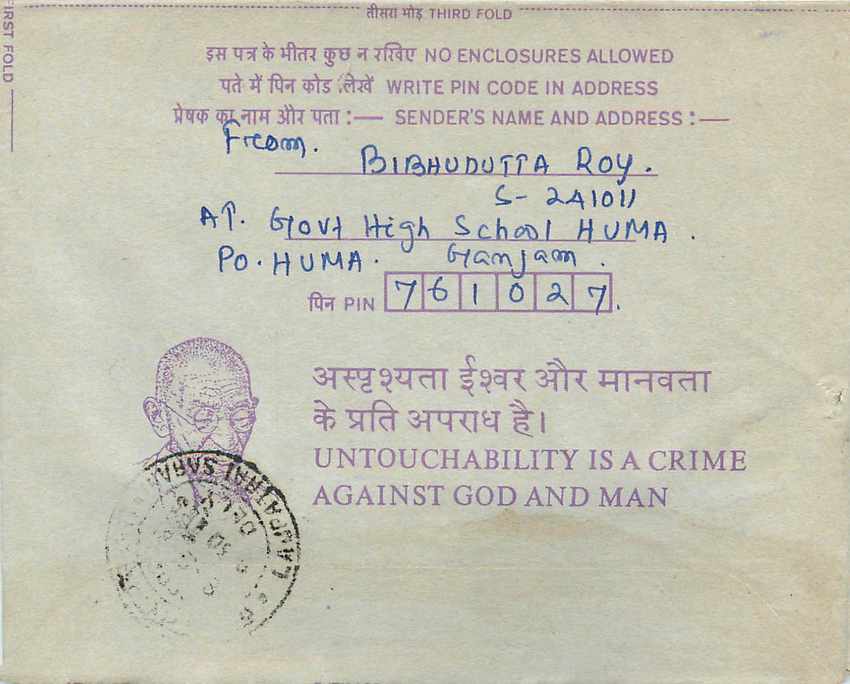 तीसरा मोड़ THIRD FOLD
FIRST FOLD
इस पत्र के भीतर कुछ न रखिए NO ENCLOSURES ALLOWED
पते में पिन कोड लिखें WRITE PIN CODE IN ADDRESS
प्रेषक का नाम और पता :— SENDER'S NAME AND ADDRESS :—
From.
BIBHUDUTTA ROY.
S-241011
AT. Govt High School HUMA.
PO. HUMA. Ganjam.
पिन PIN 761027.
अस्पृश्यता ईश्वर और मानवता
के प्रति अपराध है।
UNTOUCHABILITY IS A CRIME
AGAINST GOD AND MAN
LAJPATRAI